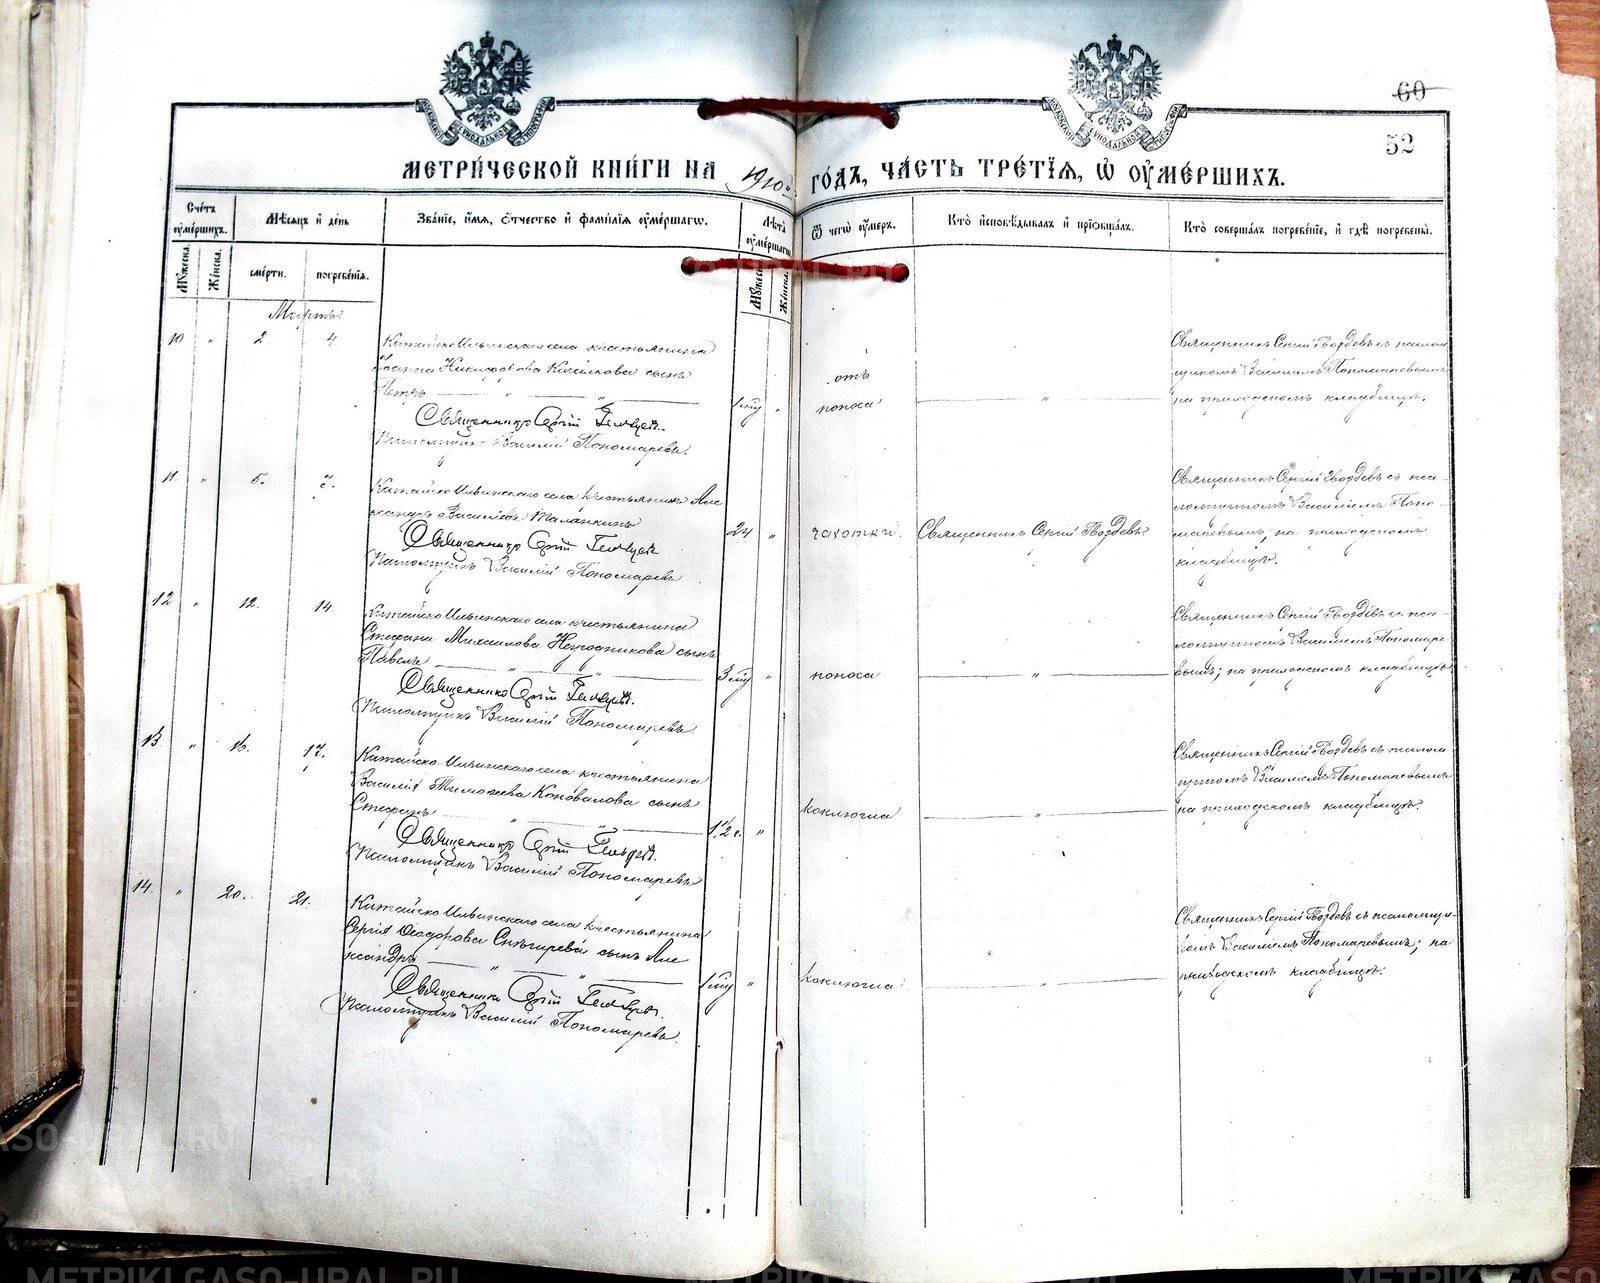 60
52
МЕТРИ́ЧЕСКОЙ КНИ́ГИ НА 1910 й ГО́ДЪ, ЧА́СТЬ ТРЕ́ТІѦ, Ѡ ОУМЕ́РШИХЪ.
Сче́тъ оуме́ршихъ.
Му́жеска.
Же́нска.
Мѣ́сѧцъ и де́нь
сме́рти.
погребе́нїѧ.
Зва́нїе, и́мѧ, о́тчество и фами́лїѧ оуме́ршагѡ.
Лѣ́та оуме́ршагѡ
Му́жеск
Же́нска.
Ѿ чегѡ̀ оу́меръ.
Кто̀ и҆сповѣ́дывалъ и҆ прїѡбща́лъ.
Кто̀ соверша́лъ погребе́нїе, и҆ гдѣ̀ погребены̀.
Мартъ
10 " 2. 4
Катайско Ильинскаго села крестьянина
Іоанна Никифорова сынъ
Петръ
Священникъ Сергій Гвоздевъ.
Псаломщикъ Василій Пономаревъ.
"
отъ
поноса
"
Священникъ Сергій Гвоздевъ съ псалом
щикомъ Василіемъ Пономаревымъ
на приходскомъ кладбищѣ.
11 " 5. 7.
Катайско Ильинскаго села крестьянинъ Але
ксандръ Василіевъ Таланкинъ
Священникъ Сергій Гвоздевъ
Псаломщикъ Василій Пономаревъ
24 "
чахотки.
Священникъ Сергій Гвоздевъ.
Священникъ Сергій Гвоздевъ съ пса-
ломщикомъ Василіемъ Поно-
маревымъ, на приходскомъ
кладбищѣ.
12 " 12. 14.
Катайско Ильинскаго села крестьянина
Стефана Михаилова сынъ
Павелъ "
Священникъ Сергій Гвоздевъ.
Псаломщикъ Василій Пономаревъ
"
поноса
"
Священникъ Сергій Гвоздевъ съ пса-
ломщикомъ Василіемъ Пономаре
вымъ; на приходскомъ кладбищѣ
13 " 16. 17.
Катайско-Ильинскаго села крестьянина
Василія Тимофеева Коновалова сынъ
Стефанъ " "
Священникъ Сергій Гвоздевъ.
Псаломщикъ Василій Пономаревъ
"
коклюша
"
Священникъ Сергій Гвоздевъ съ псалом
щикомъ Василіемъ Пономаревымъ
на приходскомъ кладбищѣ.
14. " 20. 21.
Катайско Ильинскаго села крестьянина
Сергія Ѳеодорова Снѣгирева сынъ Але
ксандръ " "
Священникъ Сергій Гвоздевъ.
Псаломщикъ Василій Пономаревъ.
"
коклюша
"
Священникъ Сергій Гвоздевъ съ псаломщи-
комъ Василіемъ Пономаревымъ; на
приходскомъ кладбищѣ.
METRIKI.GASO-URAL.RU